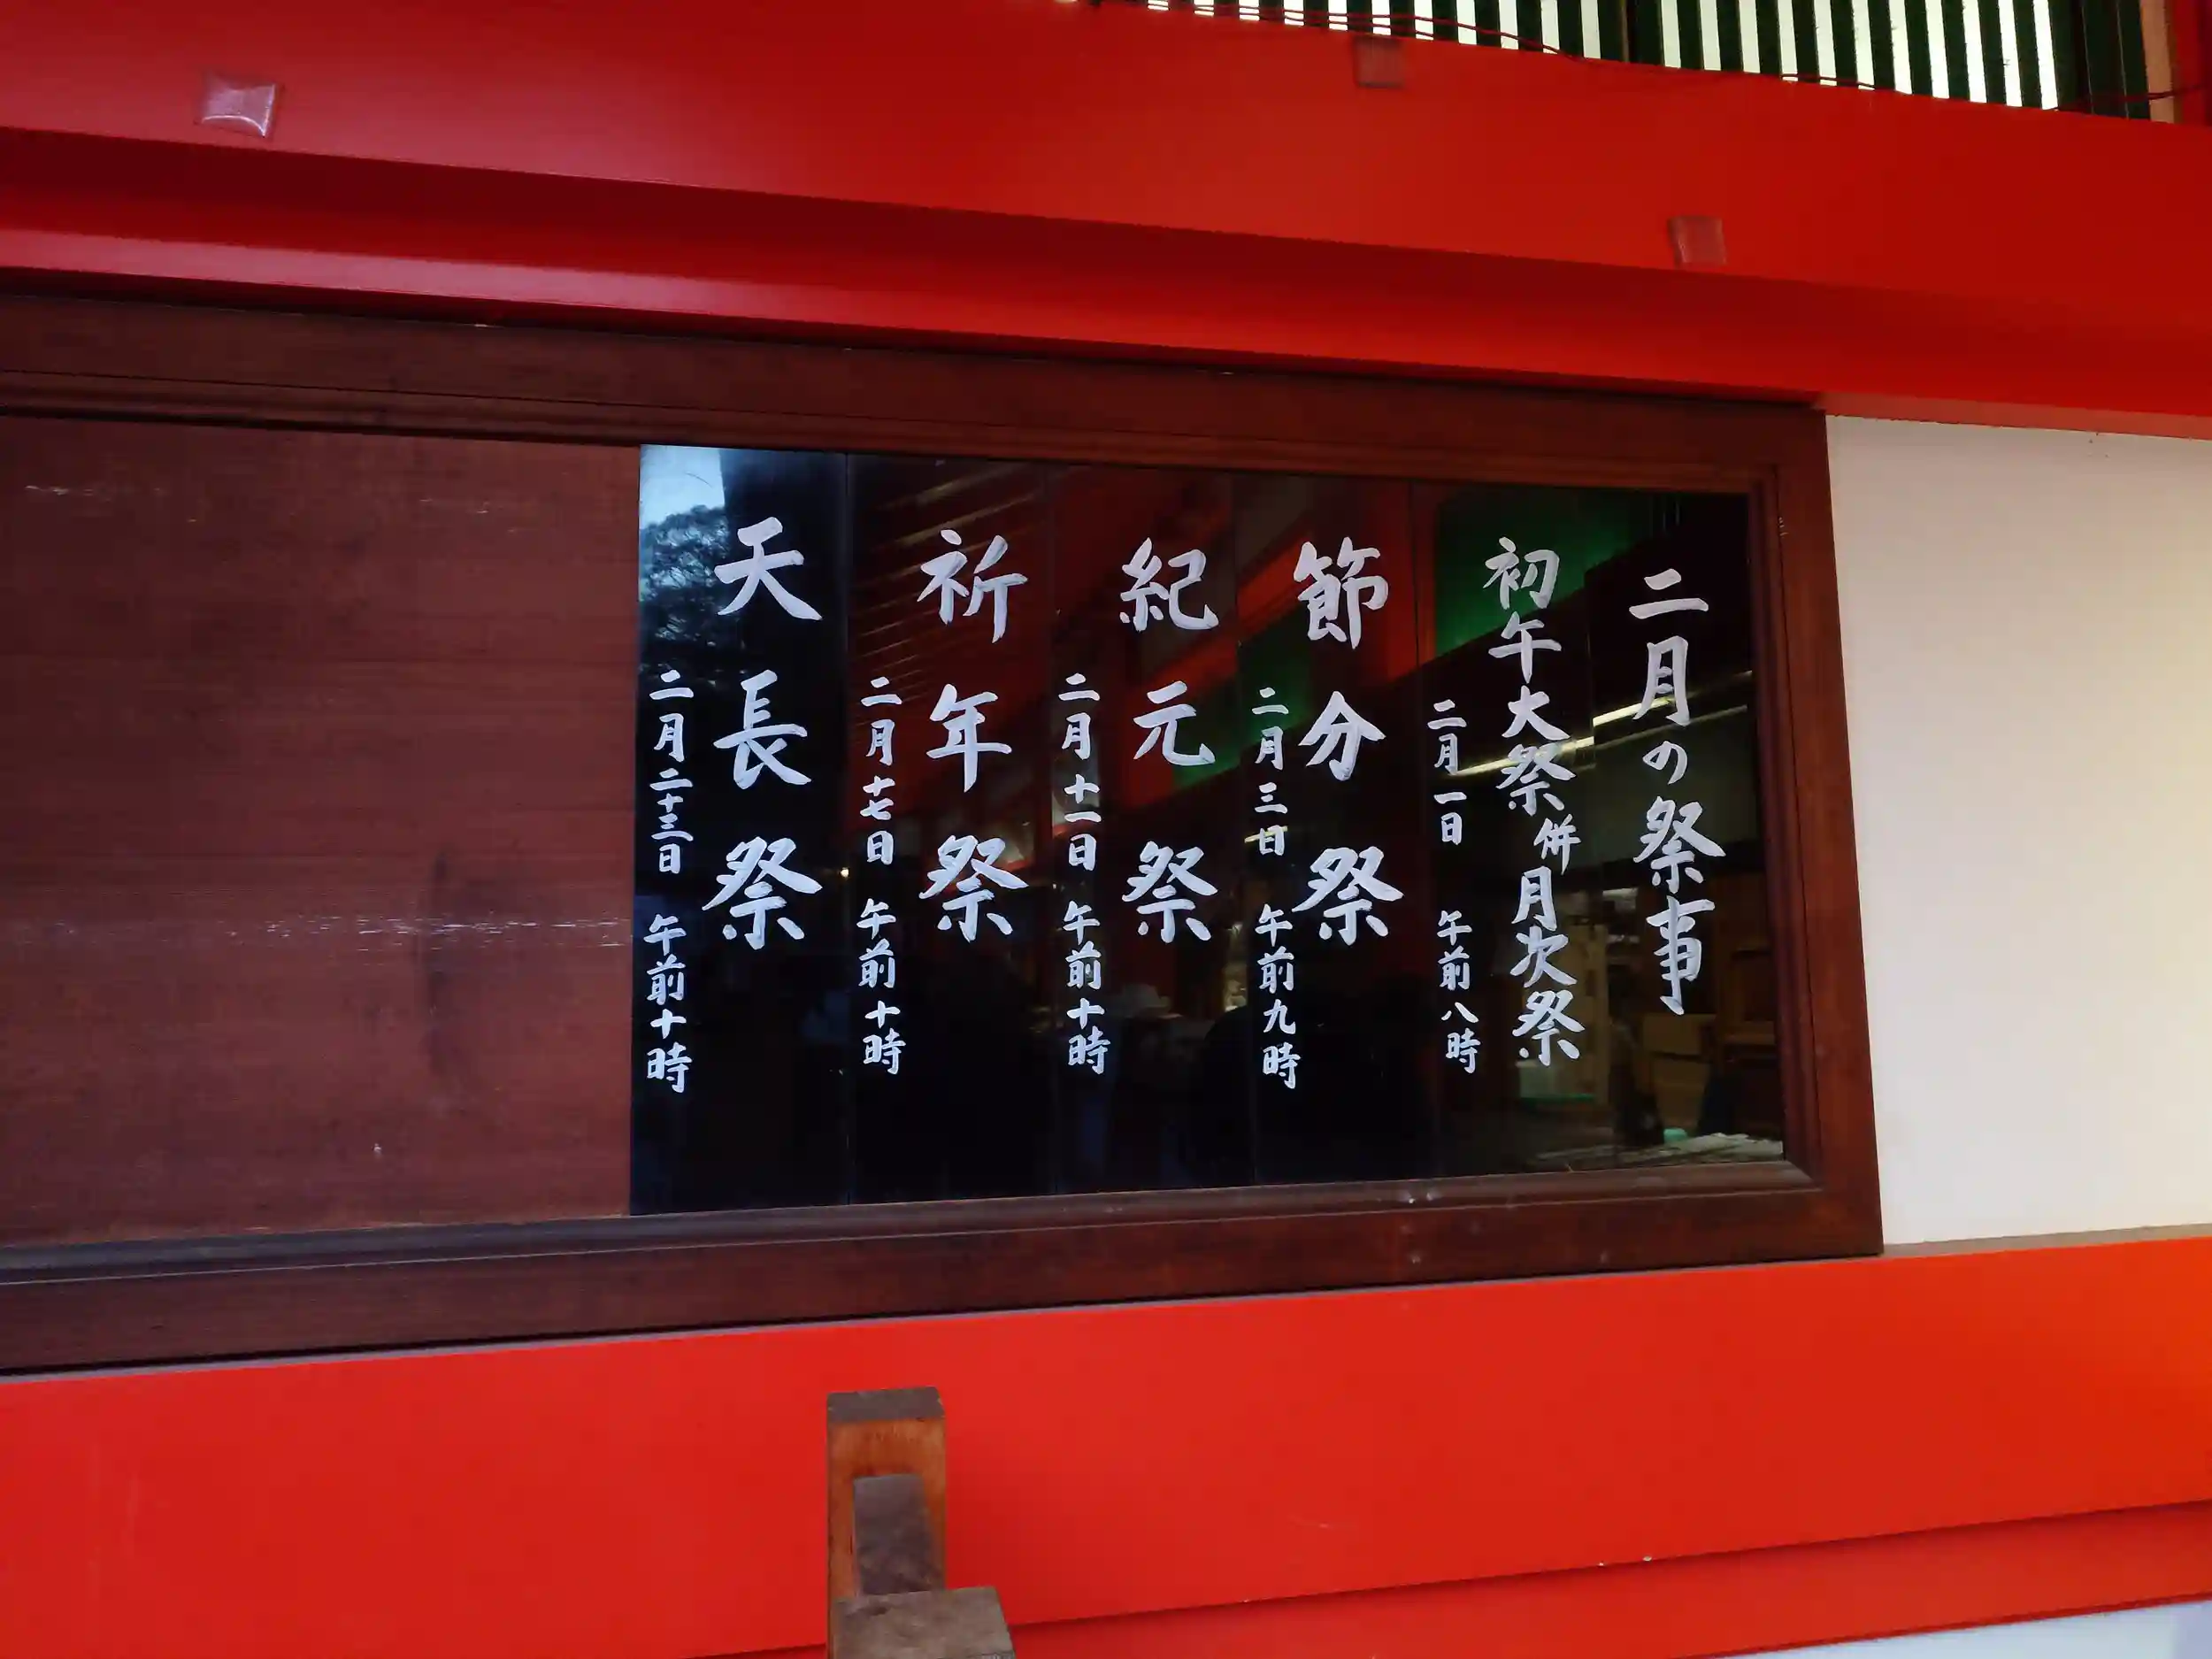 二月の祭事
初午大祭併月次祭
二月一日 午前八時
節分祭
二月三日 午前九時
紀元祭
二月十一日 午前十時
祈年祭
二月十七日 午前十時
天長祭
二月二十三日 午前十時